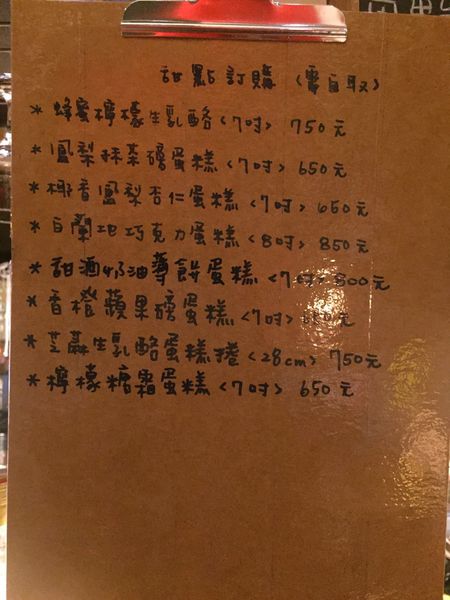 甜點訂購(需自取)
* 蜂蜜檸檬生乳酪<7吋> 750元
* 鳳梨抹茶磅蛋糕<7吋> 650元
* 椰香鳳梨杏仁蛋糕<7吋> 650元
* 白蘭地巧克力蛋糕<8吋> 850元
* 甜酒奶油蕚餅蛋糕<7吋> 800元
* 香橙蘋果磅蛋糕<7吋> 元
* 芝麻生乳酪蛋糕捲<28cm> 750元
* 檸檬糖霜蛋糕<7吋> 650元